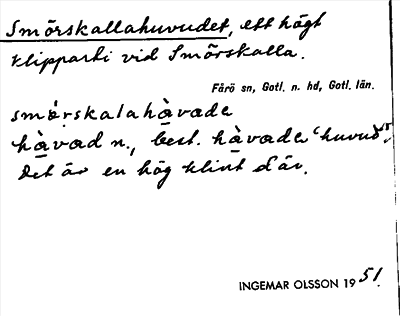 Smörskallahuvudet, ett högt
klipparti vid Smörskalla.
Fårö sn, Gotl. n. hd, Gotl. län.
smö̀rskalahàvade
hàvad n., best. hàvade 'huvud'.
Det är en hög klint där.
INGEMAR OLSSON 1951.